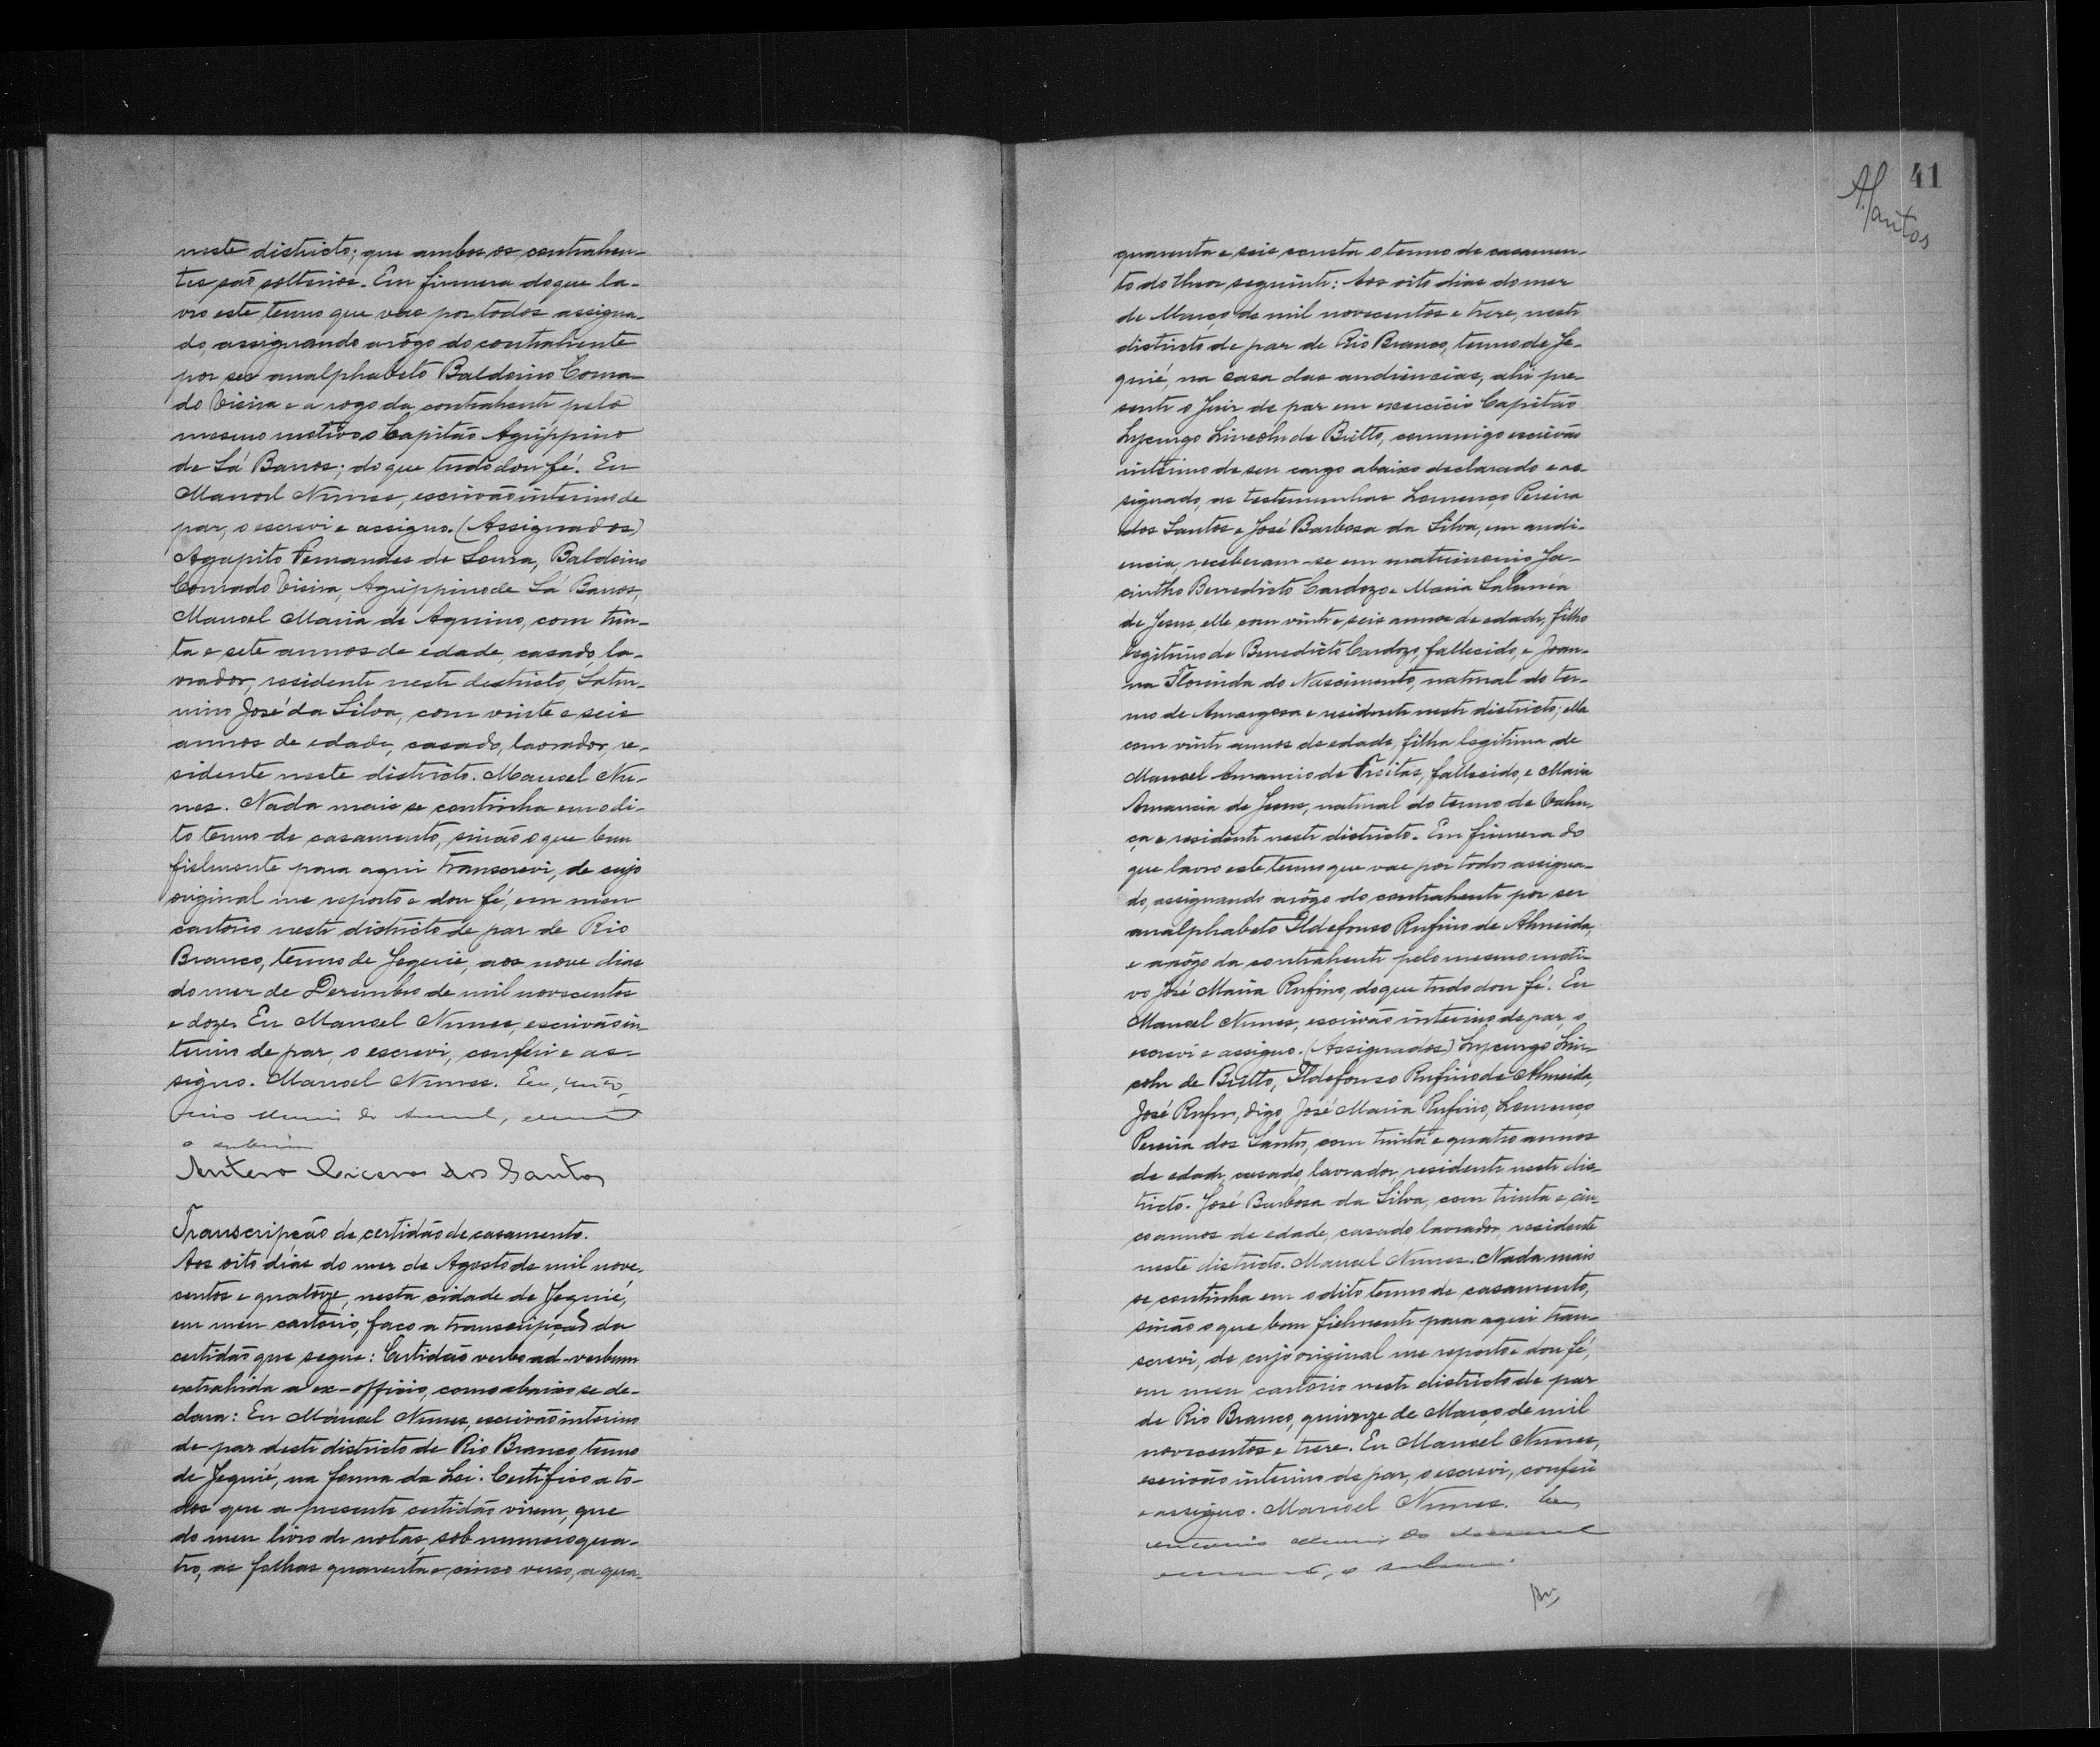 neste districto; que ambos os contrahen-
tes são solteiros. Em firmeza do que la-
vro este termo que vae por todos assigna-
do, assignando arôgo do contrahente
por ser analphabeto Baldoino Conra-
do Vieira e a rogo da contrahente pelo
mesmo motivo o Capitão Agrippino
de Sá Barros; do que tudo dou fé. Eu
Manoel Nunes, escrivão interino de
paz, o escrevi e assigno. (Assignados)
Agapito Fernandes de Souza, Baldoino
Conrado Vieira, Agrippino de Sá Barros,
Manoel Maria de Aquino, com trin-
ta e sete annos de edade, casado, la-
vrador, residente neste districto, Satur-
nino José da Silva, com vinte e seis
annos de edade, casado, lavrador, re-
sidente neste districto. Manoel Nu-
nes. Nada mais se continha em o di-
to termo de casamento, sinão o que bem
fielmente para aqui transcrevi, de cujo
original me reporto e dou fé, em meu
cartorio neste districto de paz de Rio
Branco, termo de Jequié, aos nove dias
do mez de Dezembro de mil novecentos
e doze. Eu Manoel Nunes, escrivão in-
terino de paz, o escrevi, conferi e as-
signo. Manoel Nunes. Eu,
o subscrevi
Antero Cicero dos Santos
Transcripção de certidão de casamento.
Aos oito dias do mez de Agosto de mil nove-
centos e quatorze, nesta cidade de Jequié,
em meu cartorio, faço a transcripção da
certidão que segue: Certidão verbo ad-verbum
extrahida a ex-officio, como abaixo se de-
clara: Eu Manoel Nunes, escrivão interino
de paz deste districto de Rio Branco, termo
de Jequié, na forma da Lei. Certifico a to-
dos que a presente certidão virem, que
do meu livro de notas, sob numero qua-
tro, as folhas quarenta e cinco verso, a qua-
41
ASantos
quarenta e seis consta o termo de casamen-
to do theor seguinte: Aos oito dias do mez
de Março de mil novecentos e treze, neste
districto de paz de Rio Branco, termo de Je-
quié, na casa das audiencias, ahi pre-
sente o Juiz de paz em exercicio Capitão
Lycurgo Lincoln de Britto, commigo escrivão
interino de seu cargo abaixo declarado e as-
signado, as testemunhas Lourenço Pereira
dos Santos e José Barbosa da Silva, em audi-
encia, receberam-se em matrimonio Ja-
cintho Benedicto Cardozo e Maria
de Jesus, elle com vinte e seis annos de edade, filho
legitimo de Benedicto Cardozo, fallecido, e Joan-
na Florinda do Nascimento, natural do ter-
mo de Amargosa e residente neste districto; ella
com vinte annos de edade, filha legitima de
Manoel Amancio de Freitas, fallecido, e Maria
Amancia de Jesus, natural do termo de Valen-
ça e residente neste districto. Em firmeza do
que lavro este termo que vae por todos assigna-
do, assignando arôgo do contrahente por ser
analphabeto Ildefonso Rufino de Almeida,
e arôgo da contrahente pelo mesmo moti-
vo José Maria Rufino, do que tudo dou fé. Eu
Manoel Nunes, escrivão interino de paz, o
escrevi e assigno. (Assignados) Lycurgo Lin-
coln de Britto, Ildefonso Rufino de Almeida,
José Rufin, digo, José Maria Rufino, Lourenço
Pereira dos Santos, com trinta e quatro annos
de edade, casado, lavrador, residente neste dis-
tricto. José Barbosa da Silva, com trinta e cin-
co annos de edade, casado, lavrador, residente
neste districto. Manoel Nunes. Nada mais
se continha em o dito termo de casamento,
sinão o que bem fielmente para aqui tran-
screvi, de cujo original me reporto e dou fé,
em meu cartorio neste districto de paz
de Rio Branco, quinze de Março de mil
novecentos e treze. Eu Manoel Nunes,
escrivão interino de paz, o escrevi, conferi
e assigno. Manoel Nunes. Eu,